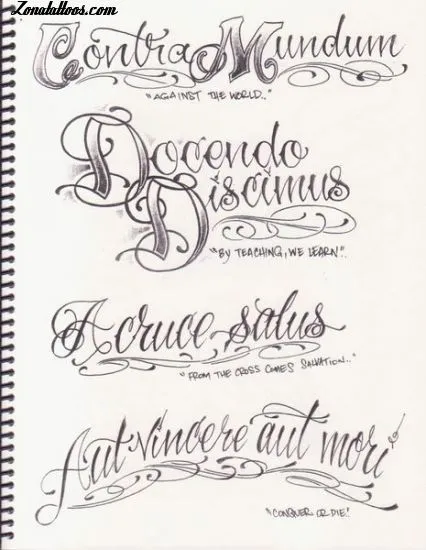 Zonatattoos.com
Contra Mundum
"AGAINST THE WORLD.."
Docendo
Discimus
"BY TEACHING, WE LEARN".
A cruce salus
"FROM THE CROSS COMES SALVATION..."
Aut vincere aut mori
"CONQUER OR DIE!"